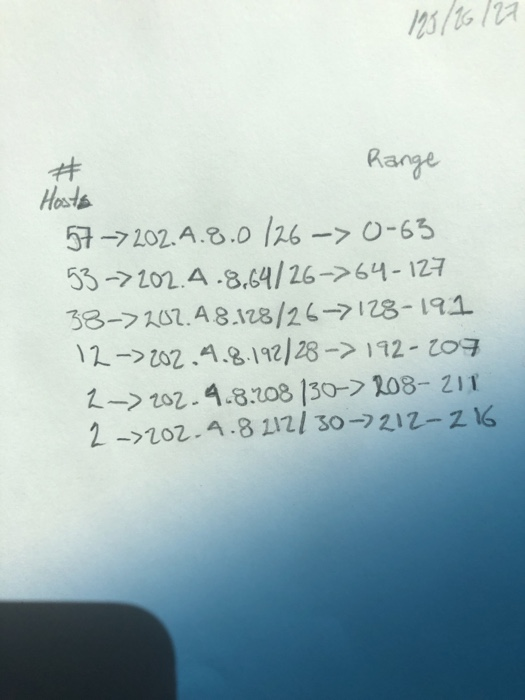 125/26/27
# Range
Hosts
57->202.A.8.0 /26 -> 0-63
53->202.A.8.64/26->64-127
38->202.A8.128/26->128-191
12->202.A.8.192/28->192-207
2->202.A.8.208/30->208-211
2->202.A.8 212/30->212-216